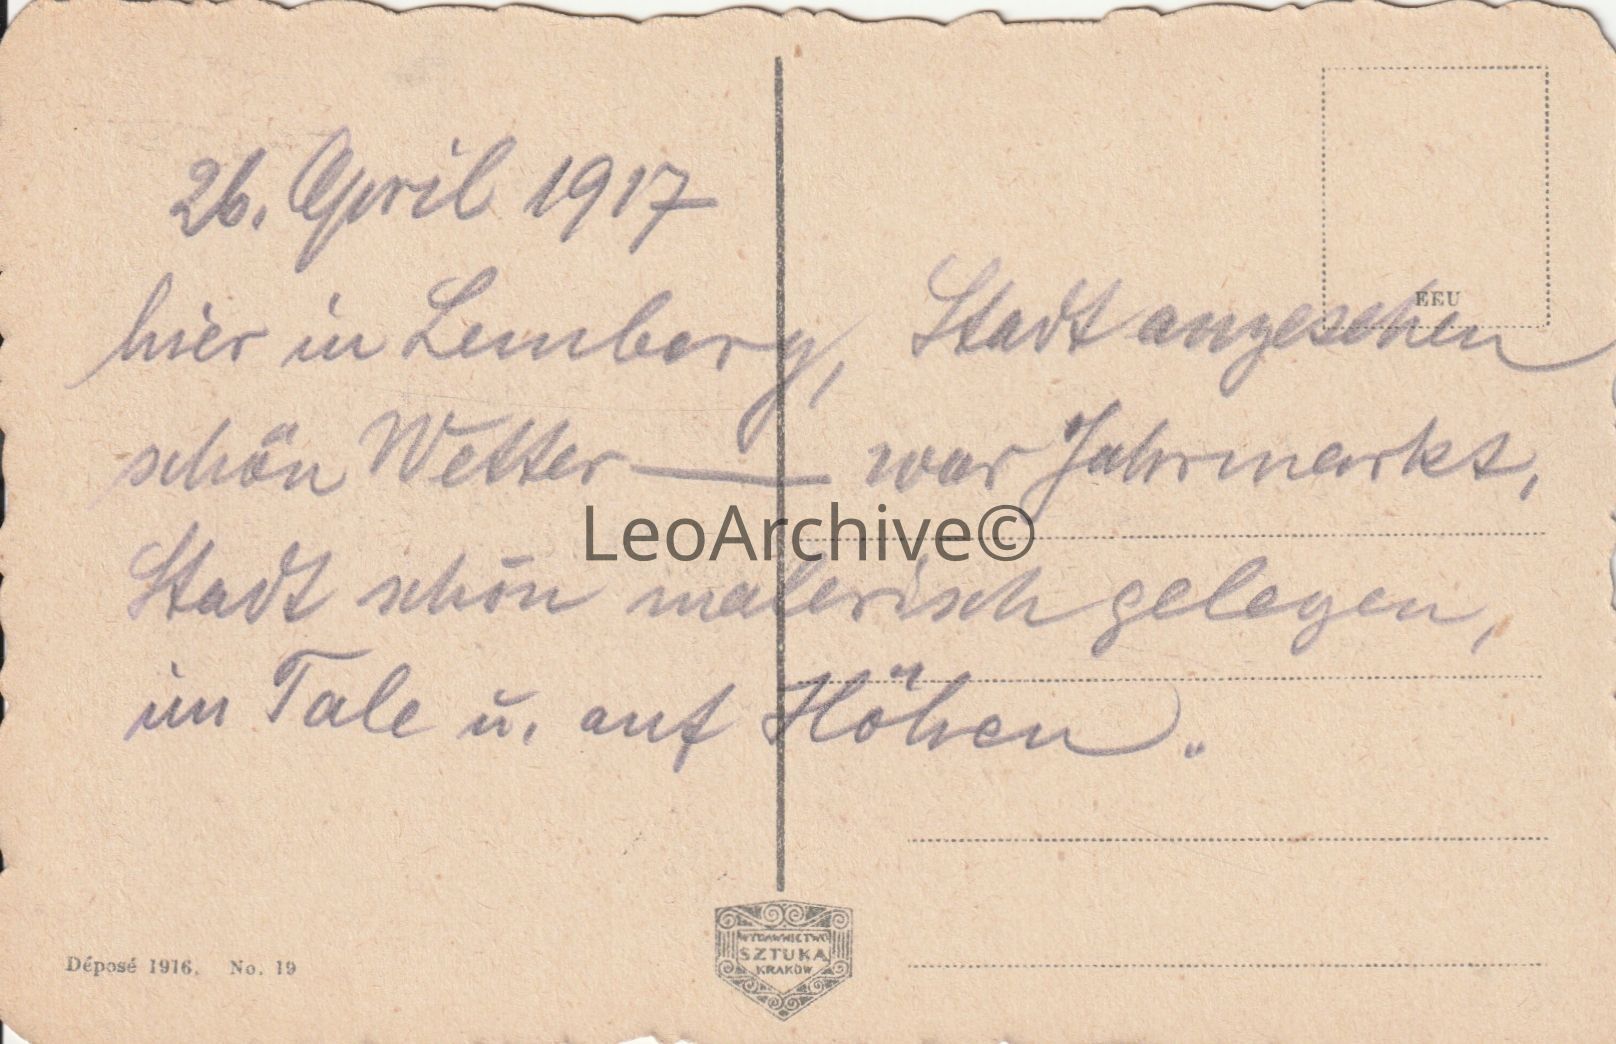 26. April 1917
hier in Lemberg, Stadt angesehen
schön Wetter — war Jahrmarkt,
Stadt schön malerisch gelegen,
im Tale u. auf Höhen.
EEU
LeoArchive©
Déposé 1916. No. 19
WYDAWNICTWO
SZTUKA
KRAKÓW